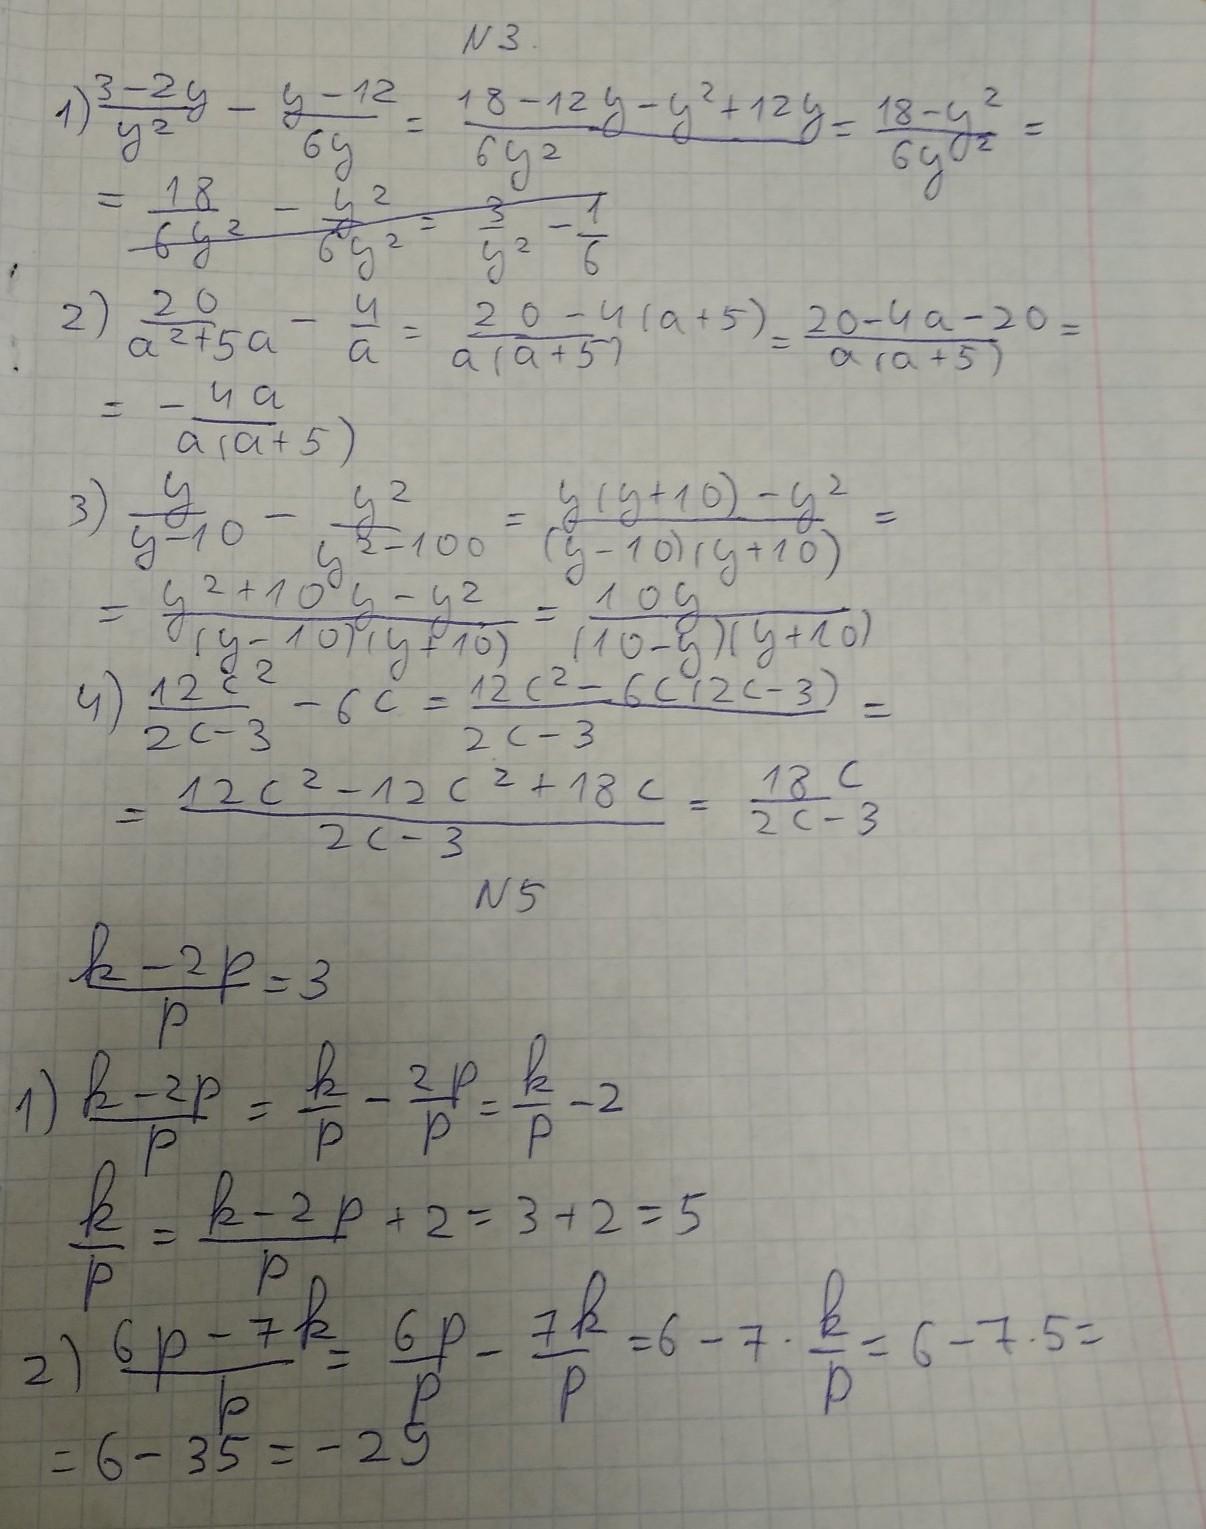 N3.
1) (3-2y)/y² - (y-12)/6y = (18-12y-y²+12y)/6y² = (18-y²)/6y² =
= 18/6y² - y²/6y² = 3/y² - 1/6
2) 20/(a²+5a) - 4/a = (20-4(a+5))/(a(a+5)) = (20-4a-20)/(a(a+5)) =
= - 4a/(a(a+5))
3) y/(y-10) - y²/(y²-100) = (y(y+10)-y²)/((y-10)(y+10)) =
= (y²+10y-y²)/((y-10)(y+10)) = 10y/((10-y)(y+10))
4) 12c²/(2c-3) - 6c = (12c²-6c(2c-3))/(2c-3) =
= (12c²-12c²+18c)/(2c-3) = 18c/(2c-3)
N5
(k-2p)/p = 3
1) (k-2p)/p = k/p - 2p/p = k/p - 2
k/p = (k-2p)/p + 2 = 3+2 = 5
2) (6p-7k)/p = 6p/p - 7k/p = 6 - 7·k/p = 6-7·5 =
= 6-35 = -29